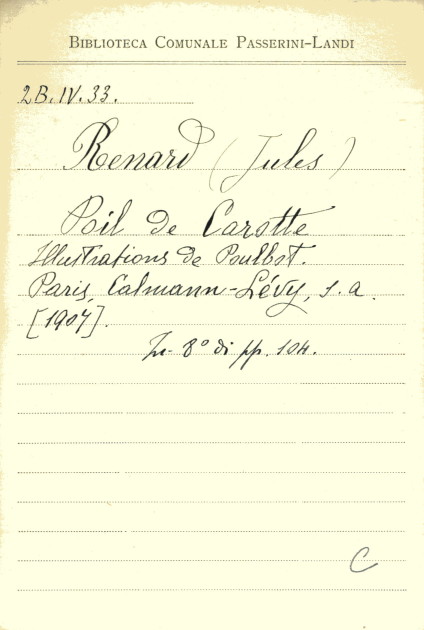 BIBLIOTECA COMUNALE PASSERINI-LANDI
2B.IV.33.
Renard (Jules)
Poil de Carotte
Illustrations de Poulbot.
Paris, Calmann-Lévy, s.a.
[1907].
In-8° di pp. 104.
C